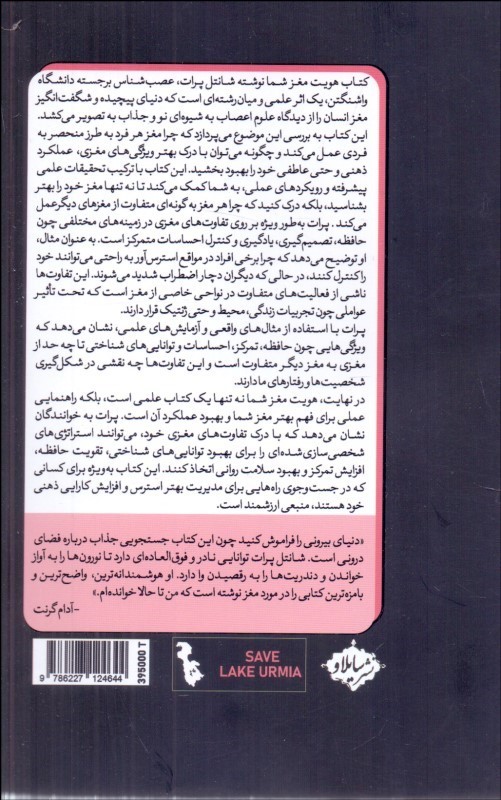 کتاب هویت مغز شما نوشته شانتل پرات، عصب‌شناس برجسته دانشگاه
واشنگتن، یک اثر علمی و میان‌رشته‌ای است که دنیای پیچیده و شگفت‌انگیز
مغز انسان را از دیدگاه علوم اعصاب به شیوه‌ای نو و جذاب به تصویر می‌کشد.
این کتاب به بررسی این موضوع می‌پردازد که چرا مغز هر فرد به طرز منحصر به
فردی عمل می‌کند و چگونه می‌توان با درک بهتر ویژگی‌های مغزی، عملکرد
ذهنی و حتی عاطفی خود را بهبود بخشید. این کتاب با ترکیب تحقیقات علمی
پیشرفته و رویکردهای عملی، به شما کمک می‌کند تا نه تنها مغز خود را بهتر
بشناسید، بلکه درک کنید که چرا هر مغز به گونه‌ای متفاوت از مغزهای دیگر عمل
می‌کند. پرات به‌طور ویژه بر روی تفاوت‌های مغزی در زمینه‌های مختلفی چون
حافظه، تصمیم‌گیری، یادگیری و کنترل احساسات متمرکز است. به عنوان مثال،
او توضیح می‌دهد که چرا برخی افراد در مواقع استرس‌آور به راحتی می‌توانند خود
را کنترل کنند، در حالی که دیگران دچار اضطراب شدید می‌شوند. این تفاوت‌ها
ناشی از فعالیت‌های متفاوت در نواحی خاصی از مغز است که تحت تأثیر
عواملی چون تجربیات زندگی، محیط و حتی ژنتیک قرار دارند.
پرات با استفاده از مثال‌های واقعی و آزمایش‌های علمی، نشان می‌دهد که
ویژگی‌هایی چون حافظه، تمرکز، احساسات و توانایی‌های شناختی تا چه حد از
مغزی به مغز دیگر متفاوت است و این تفاوت‌ها چه نقشی در شکل‌گیری
شخصیت‌ها و رفتارهای ما دارند.
در نهایت، هویت مغز شما نه تنها یک کتاب علمی است، بلکه راهنمایی
عملی برای فهم بهتر مغز شما و بهبود عملکرد آن است. پرات به خوانندگان
نشان می‌دهد که با درک تفاوت‌های مغزی خود، می‌توانند استراتژی‌های
شخصی‌سازی‌شده‌ای را برای بهبود توانایی‌های شناختی، تقویت حافظه،
افزایش تمرکز و بهبود سلامت روانی اتخاذ کنند. این کتاب به‌ویژه برای کسانی
که در جست‌وجوی راه‌هایی برای مدیریت بهتر استرس و افزایش کارایی ذهنی
خود هستند، منبعی ارزشمند است.
«دنیای بیرونی را فراموش کنید چون این کتاب جستجویی جذاب درباره فضای
درونی است. شانتل پرات توانایی نادر و فوق‌العاده‌ای دارد تا نورون‌ها را به آواز
خواندن و دندریت‌ها را به رقصیدن وا دارد. او هوشمندانه‌ترین، واضح‌ترین و
بامزه‌ترین کتابی را در مورد مغز نوشته است که من تا حالا خوانده‌ام.»
-آدام گرنت
نشر شایلاو
SAVE
LAKE URMIA
395000 T
9 786227 124644